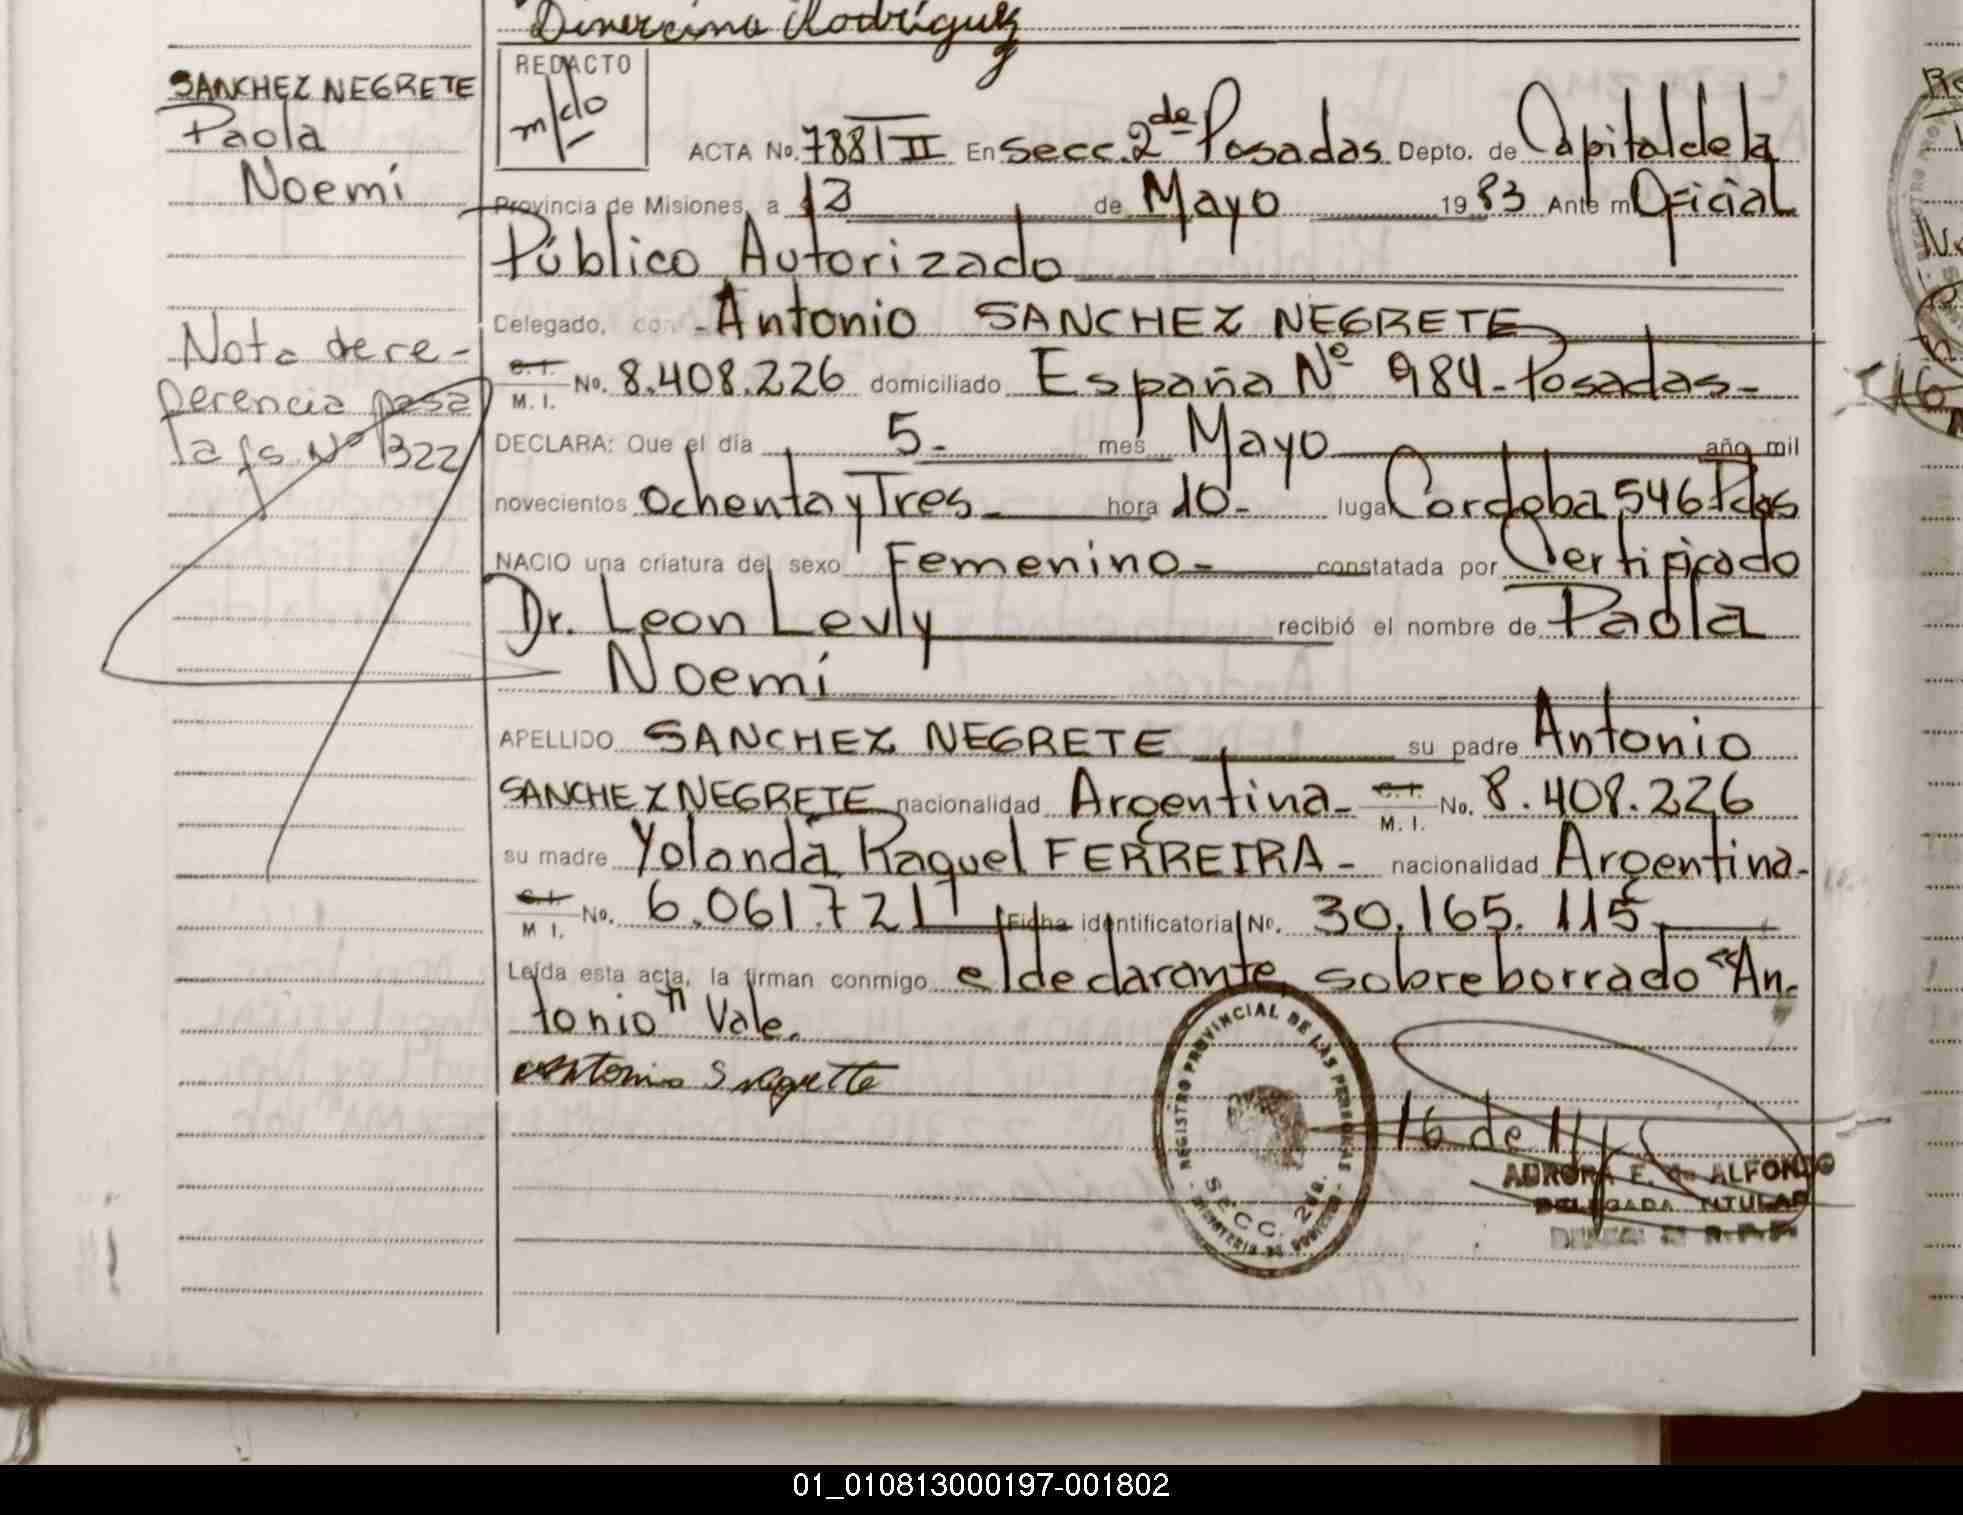 Dinercina Rodríguez
SANCHEZ NEGRETE
Paola
Noemí
Nota de re-
ferencia pasa
la fs. Nº 1322
REDACTO
ACTA No. 788 T II En Secc. 2da Posadas Depto. de Capital de la
Provincia de Misiones, a 13 de Mayo 1983 Ante mi Oficial
Público Autorizado
Delegado, - Antonio SANCHEZ NEGRETE
C. I.
M. I. No. 8.408.226 domiciliado España Nº 984 - Posadas -
DECLARA: Que el día 5 - mes Mayo año mil
novecientos Ochenta y Tres - hora 10 - lugar Cordoba 546 Pdas
NACIO una criatura del sexo Femenino - constatada por Certificado
Dr. Leon Levly recibió el nombre de Paola
Noemí
APELLIDO SANCHEZ NEGRETE, su padre Antonio
SANCHEZ NEGRETE nacionalidad Argentina - C. I.
M. I. No. 8.408.226
su madre Yolanda Raquel FERREIRA - nacionalidad Argentina -
C. I.
M I. No. 6.061.721 Ficha identificatoria No. 30.165.115
Leída esta acta, la firman conmigo el declarante, sobreborrado "An-
tonio" Vale.
Antonio S Negrette
REGISTRO PROVINCIAL DE LAS PERSONAS
SECC. 2da.
MINISTERIO DE GOBIERNO
16 de
AURORA E. de ALFONSO
DELEGADA TITULAR
R.P.P.
01_010813000197-001802